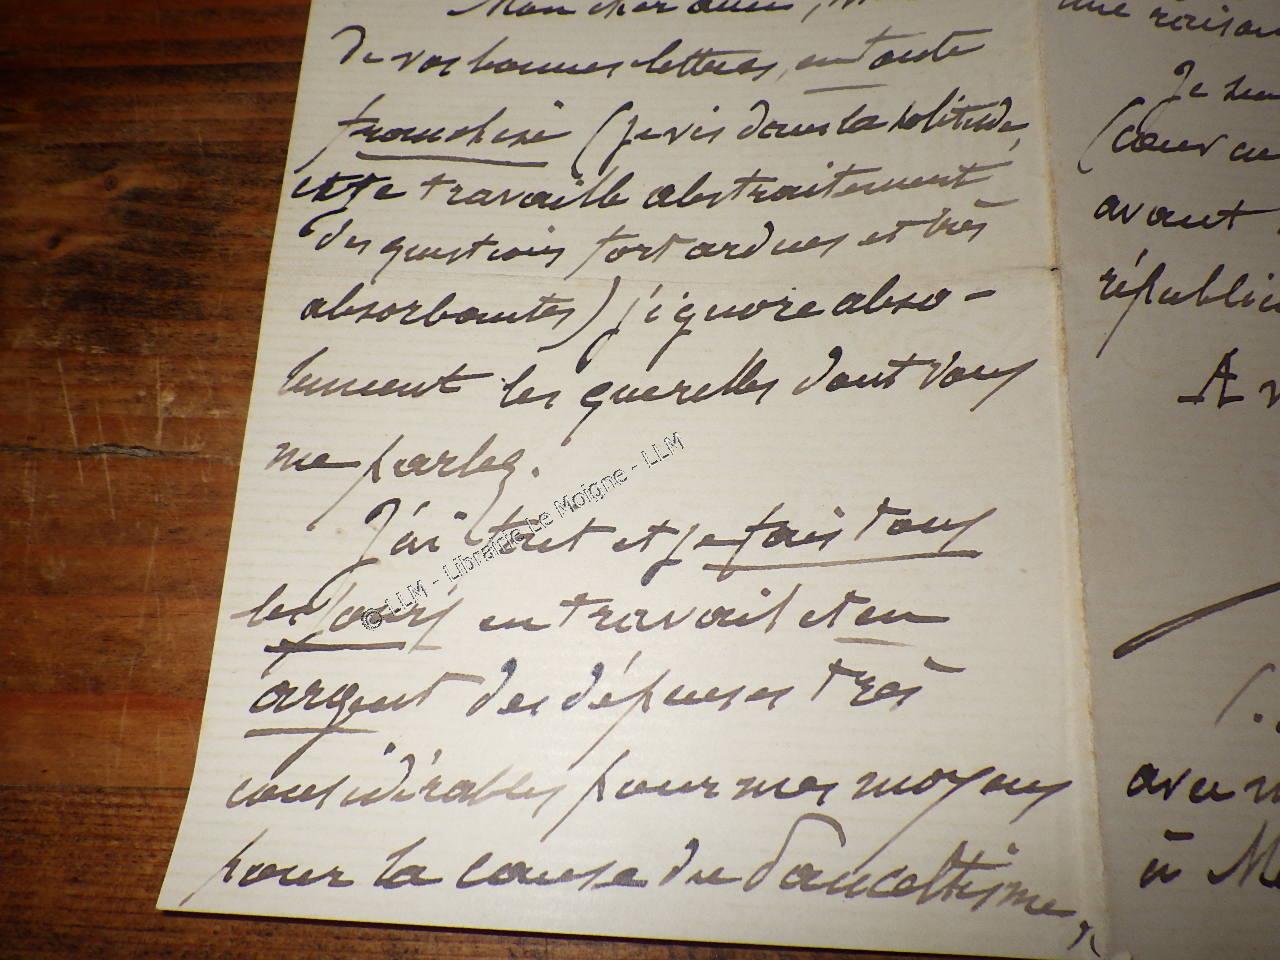 Mon cher ami,
de vos bonnes lettres, en toute
franchise (je vis dans la solitude,
et je travaille abstraitement
des questions fort ardues et très
absorbantes) j'ignore abso-
lument les querelles dont vous
me parlez.
J'ai fait et je fais tous
les jours en travail et en
argent des dépenses très
considérables pour mes moyens
pour la cause du Panceltisme,
une raison
Je
avant
républic
A
à M
© LLM - Librairie Le Moigne - LLM